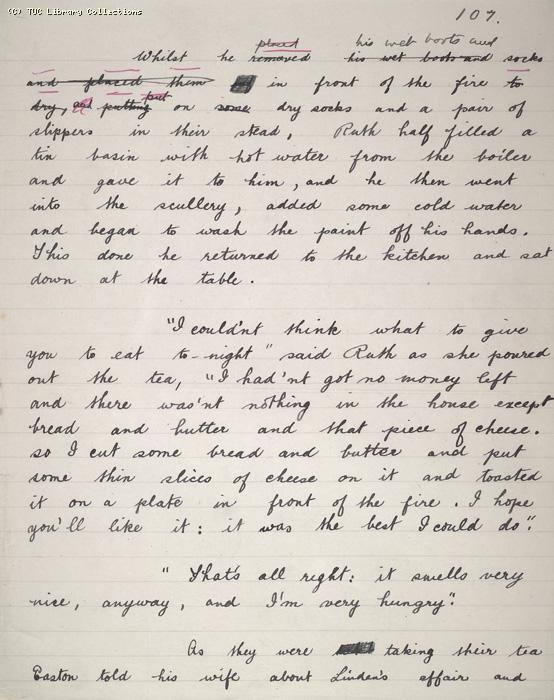 (C) TUC Library Collections
107.
placed his wet boots and
Whilst he removed his wet boots and socks
and placed them in front of the fire to
put
dry, and putting on some dry socks and a pair of
slippers in their stead, Ruth half filled a
tin basin with hot water from the boiler
and gave it to him, and he then went
into the scullery, added some cold water
and began to wash the paint off his hands.
This done he returned to the kitchen and sat
down at the table.
"I could'nt think what to give
you to eat to-night" said Ruth as she poured
out the tea, "I had'nt got no money left
and there was'nt nothing in the house except
bread and butter and that piece of cheese.
so I cut some bread and butter and put
some thin slices of cheese on it and toasted
it on a plate in front of the fire. I hope
you'll like it: it was the best I could do".
"That's all right: it smells very
nice, anyway, and I'm very hungry".
As they were taking their tea
Easton told his wife about Linden's affair and